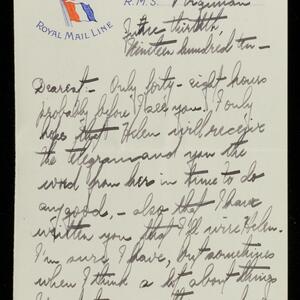 ROYAL MAIL LINE
R.M.S. Virginian
June thirtieth,
Nineteen hundred ten -
Dearest - Only forty-eight hours
probably before I see you. I only
hope that Helen will receive
the telegram and you the
word from her in time to do
any good, - also that I have
written you that I'll wire Helen.
I'm sure I have, but sometimes
when I think a lot about things